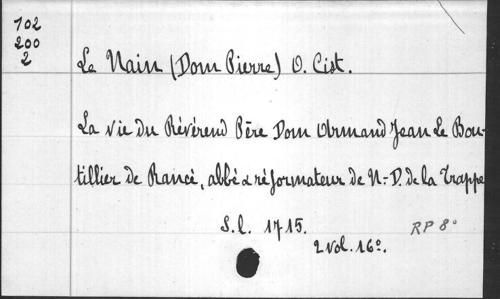 102
200
2
Le Nain (Dom Pierre) O. Cist.
La vie du Révérend Père Dom Armand Jean Le Bou-
tillier de Rancé, abbé & réformateur de N.-D. de la Trappe
S.l. 1715.
2 vol. 16º.
RP 8º